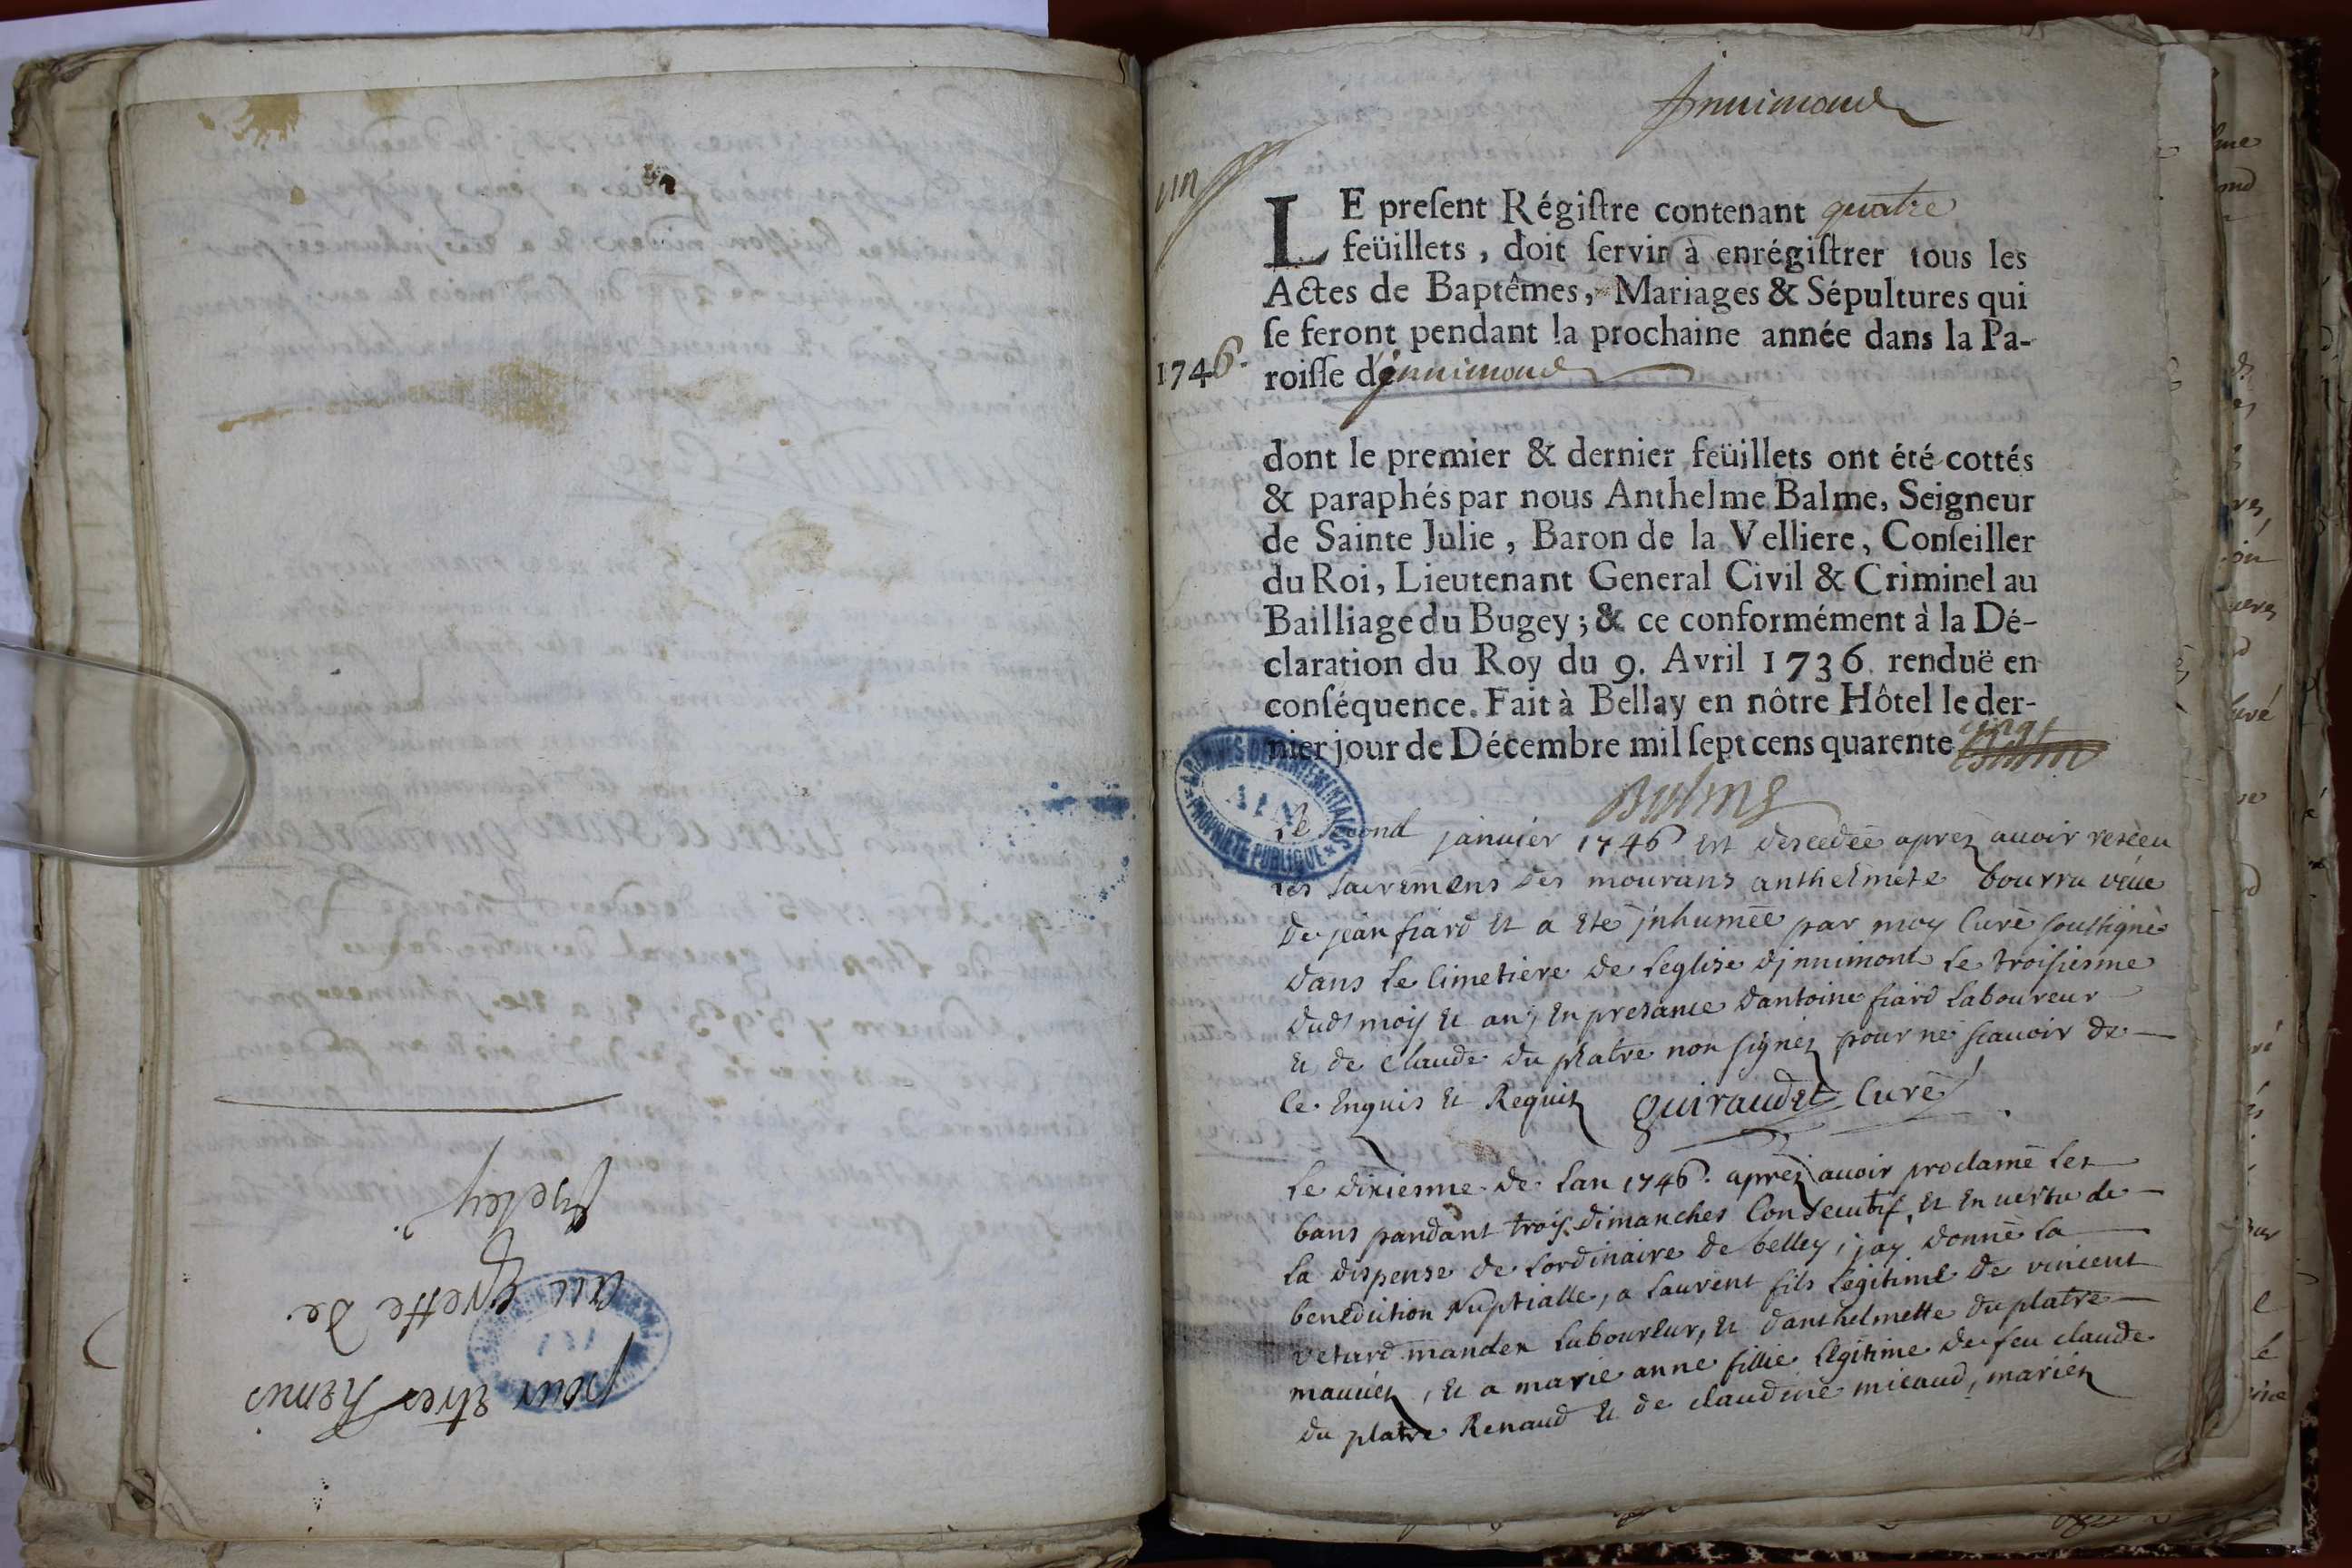 pour etres Remis
au greffe de
Beley
Innimond
un
LE preſent Régiſtre contenant quatre
feüillets, doit ſervir à enrégiſtrer tous les
Actes de Baptêmes, Mariages & Sépultures qui
ſe feront pendant la prochaine année dans la Pa-
1746. roiſſe d'jnnimond
dont le premier & dernier feüillets ont été cottés
& paraphés par nous Anthelme Balme, Seigneur
de Sainte Julie, Baron de la Velliere, Conſeiller
du Roi, Lieutenant General Civil & Criminel au
Bailliage du Bugey; & ce conformément à la Dé-
claration du Roy du 9. Avril 1736. renduë en
conſéquence. Fait à Bellay en nôtre Hôtel le der-
nier jour de Décembre mil ſept cens quarente cinq
Balme
ARCHIVES DEPARTEMENTALES
AIN
PROPRIETE PUBLIQUE
le second janvier 1746 est descedée apres avoir resceu
les sacremens des mourans anthelmete bourru veue
de jean fiard et a eté jnhumée par moy Curé soussigné
dans le Cimetiere de leglise djnnimont le troisiesme
dudt mois et an, en presance dantoine fiard laboureur
et de Claude du platre non signez pour ne scavoir de
ce Enquis et Requis Guiraudet Curé
le dixiesme de lan 1746. aprez avoir proclamé les
bans pandant trois dimanches Consecutif, et En vertu de
la dispense de lordinaire de belley, jay donné la
benediction Nuptialle, a laurent fils legitime de vincent
vetard mander laboureur, et danthelmette du platre
mariez, et a marie anne fillie legitime de feu claude
du platre Renaud et de claudine micaud, mariez